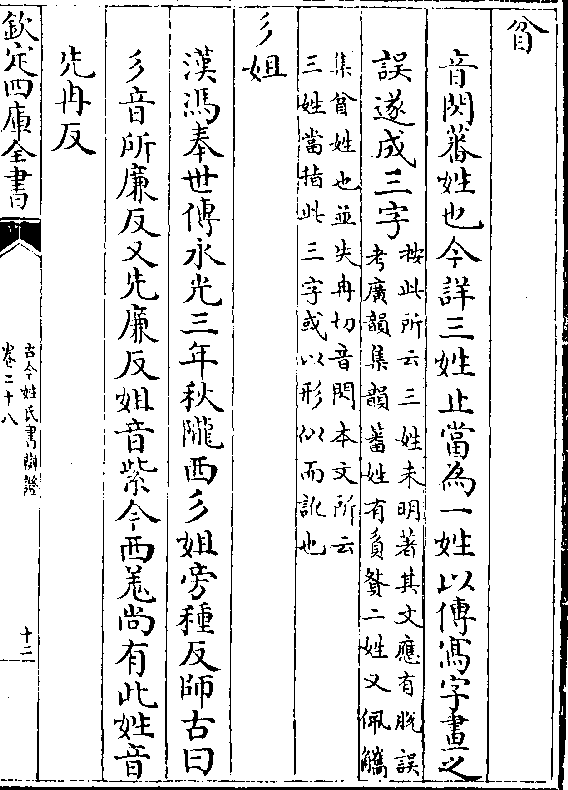 貟
音閃蕃姓也今詳三姓止當為一姓以傳寫字畫之
誤遂成三字按此所云三姓未明著其文應有脱誤
考廣韻集韻蕃姓有貟贅二姓又佩觿
集貟姓也並失冉切音閃本文所云
三姓當指此三字或以形似而訛也
彡姐
漢馮奉世傳永光三年秋隴西彡姐旁種反師古曰
彡音所廉反又先廉反姐音紫今西羌尚有此姓音
先冉反
欽定四庫全書
古今姓氏書辯證
卷二十八
十二